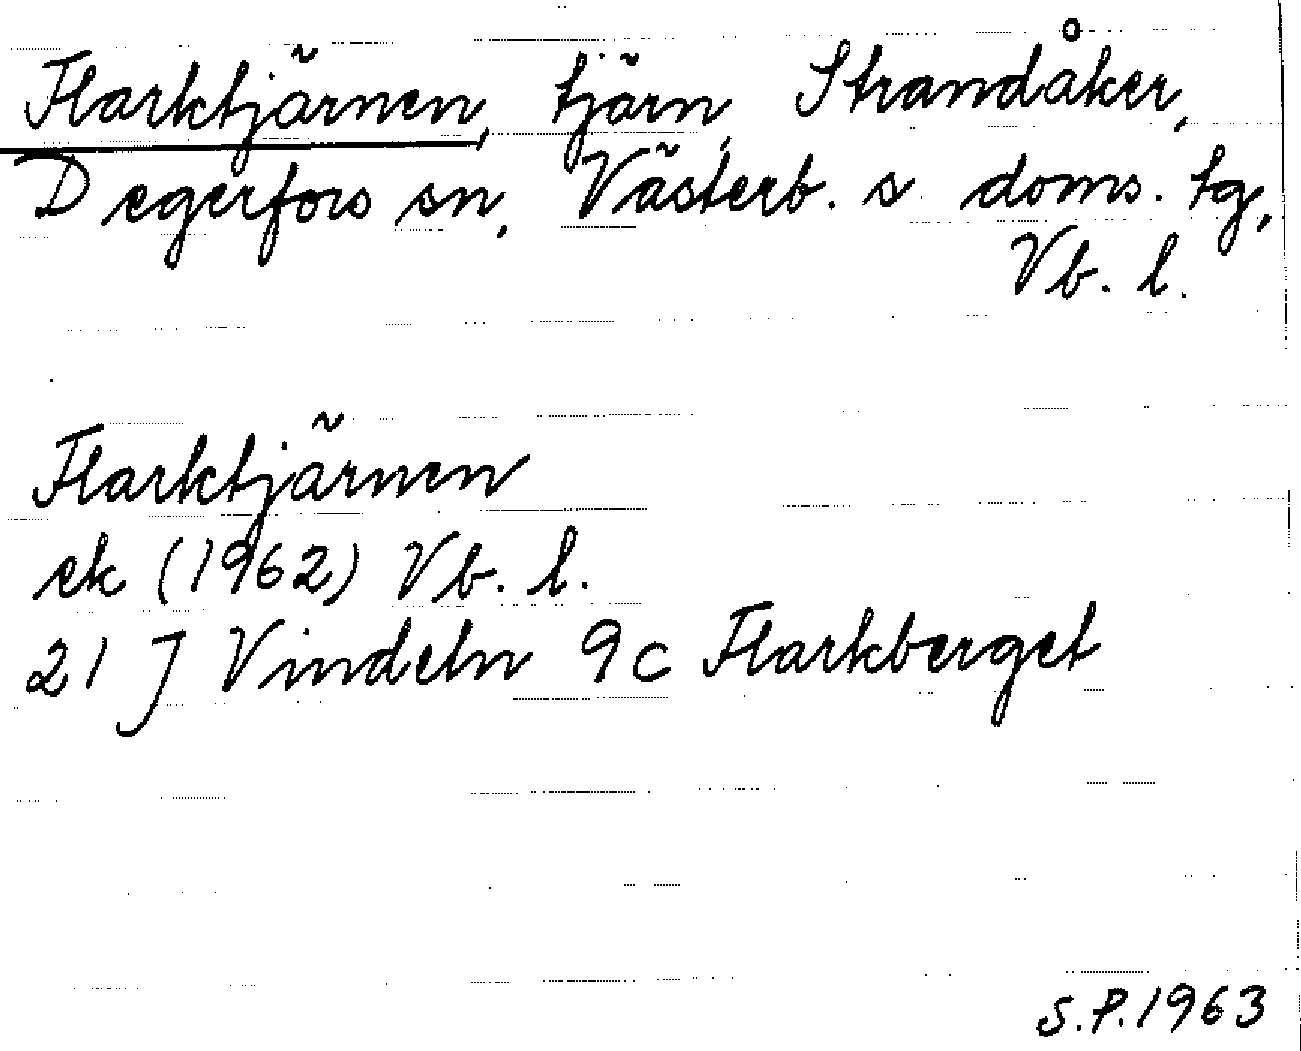 Flarktjärnen, tjärn, Strandåker,
Degerfors sn, Västerb. s. doms. tg,
Vb. l.
Flarktjärnen
ek (1962) Vb. l.
21 J Vindeln 9c Flarkberget
S.P. 1963